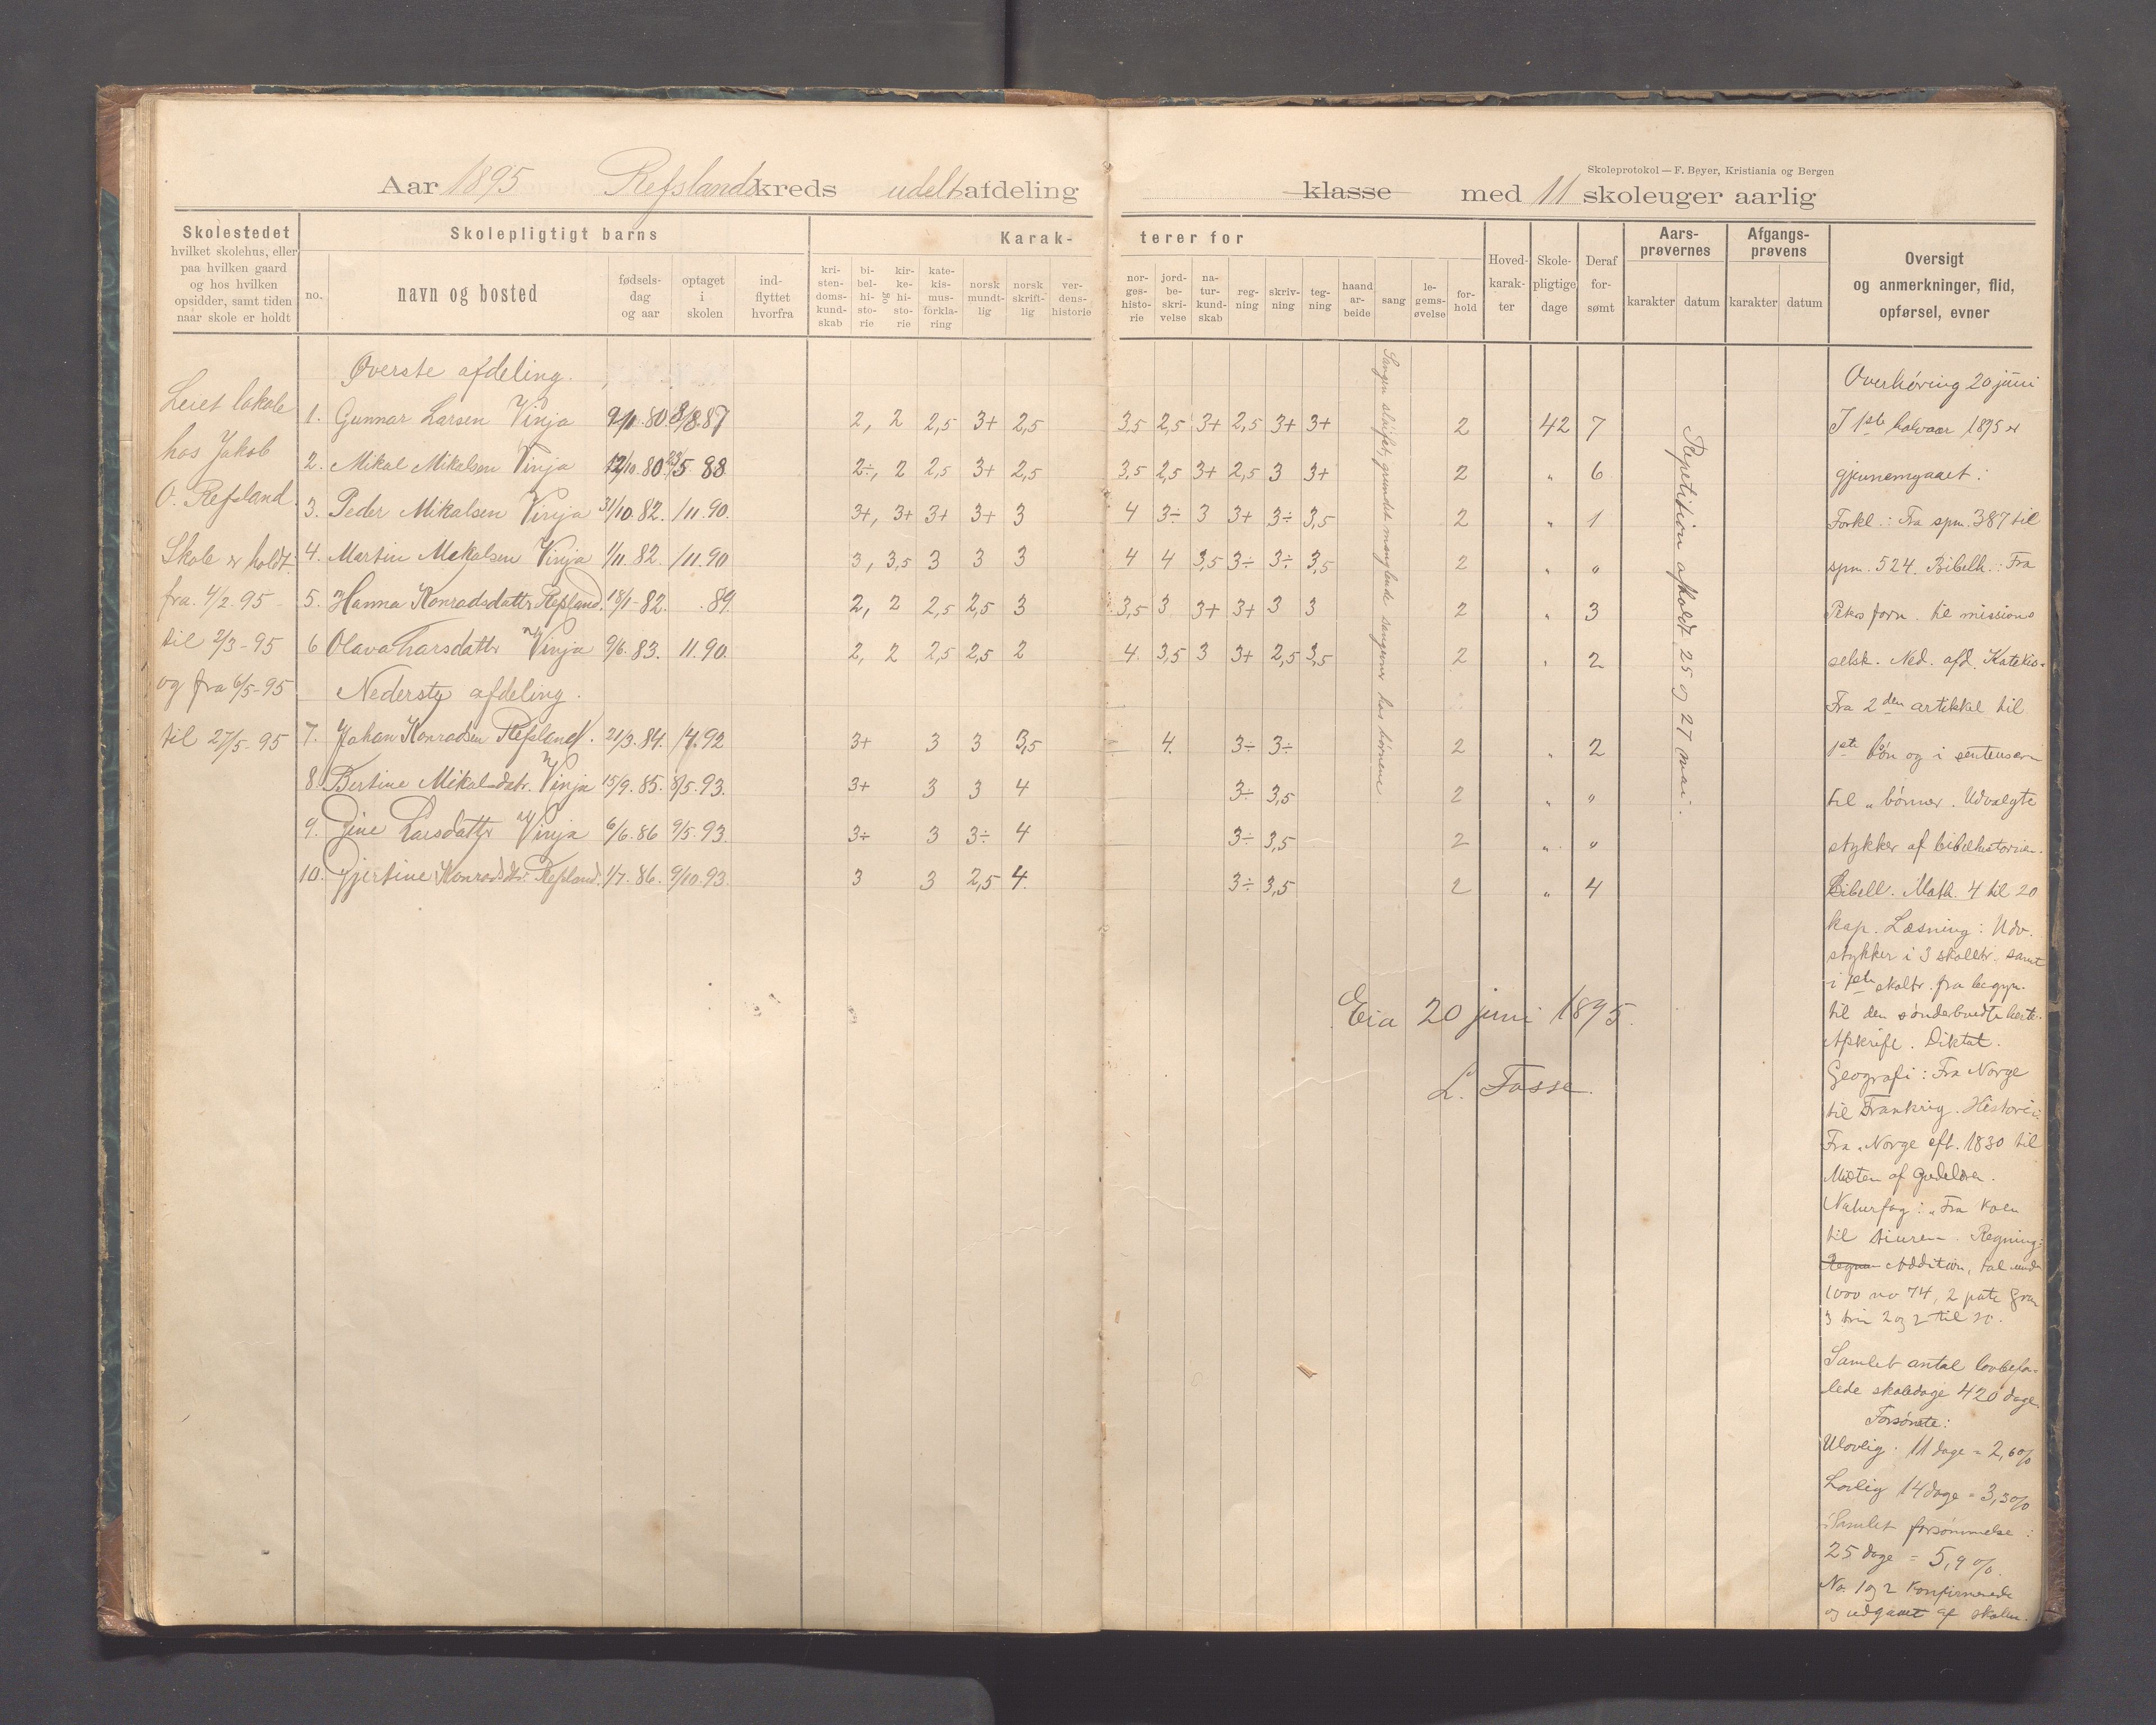 Skoleprotokol — F. Beyer, Kristiania og Bergen
Aar 1895 Refslands kreds udelt afdeling klasse med 11 skoleuger aarlig
Skolestedet
hvilket skolehus, eller
paa hvilken gaard
og hos hvilken
opsidder, samt tiden
naar skole er holdt
Skolepligtigt barns
no.
navn og bosted
fødsels-
dag
og aar
optaget
i
skolen
ind-
flyttet
hvorfra
Karak-
terer for
kri-
sten-
doms-
kund-
skab
bi-
bel-
hi-
sto-
rie
og
kir-
ke-
hi-
sto-
rie
kate-
kis-
mus-
forkla-
ring
norsk
mundt-
lig
norsk
skrift-
lig
ver-
dens-
historie
nor-
ges-
histo-
rie
jord-
be-
skri-
velse
na-
tur-
kund-
skab
reg-
ning
skriv-
ning
teg-
ning
haand
ar-
beide
sang
le-
gems-
øvelse
for-
hold
Hoved-
karak-
ter
Skole-
pligtige
dage
Deraf
for-
sømt
Aars-
prøvernes
karakter datum
Afgangs-
prøvens
karakter datum
Oversigt
og anmerkninger, flid,
opførsel, evner
Leiet lokale
hos Jakob
O. Refsland.
Skole er holdt
fra 4/2 95
til 2/3-95
og fra 6/5-95
til 27/5-95
Øverste afdeling.
1. Gunnar Larsen Vinja 9/11. 80 8/8 87 2, 2 2,5 3+ 2,5 3,5 2,5 3+ 2,5 3+ 3+ 2 42 7
2. Mikal Mikalsen Vinja 12/10. 80 23/5 88 2÷, 2 2,5 3+ 2,5 3,5 2,5 3+ 2,5 3 3+ 2 " 6
3. Peder Mikalsen Vinja 31/10. 82. /11. 90. 3+, 3+ 3+ 3+ 3 4 3÷ 3 3+ 3÷ 3,5 2 " 1
4. Martin Mikalsen Vinja 1/11. 82. /11. 90 3, 3,5 3 3 3 4 4 3,5 3÷ 3÷ 3,5 2 " "
5. Hanna Konradsdattr Refsland. 18/1-82. . 89. 2, 2 2,5 2,5 3 3,5 3 3+ 3+ 3 3 2 " 3
6 Olava Larsdattr Vinja 9/6. 83. 11. 90. 2, 2 2,5 2,5 2 4. 3,5 3 3+ 2,5 3,5 2 " 2
Nederste afdeling.
7. Johan Konradsen Refsland. 21/3. 84. /4. 92 3+ 3 3 3,5 4. 3÷ 3÷ 2 " 2
8. Bertine Mikalsdatr. Vinja 15/9. 85. 8/5. 93. 3+ 3 3 4 3÷ 3,5 2 " "
9. Gine Larsdattr Vinja 6/6. 86 9/5. 93. 3÷ 3 3÷ 4 3÷ 3,5 2 " "
10. Gjertine Konradsdtr. Refsland. 1/7. 86. 9/10. 93. 3 3 2,5 4. 3÷ 3,5 2 " 4
Sangen sløifet, grundet manglende sangevner hos børnene
Repetition afholdt 25 og 27 mai.
Eia 20 juni 1895.
L. Tasse.
Overhøring 20 juni
I 1ste halvaar 1895 er
gjennemgaaet:
Forkl.: Fra spm. 387 til
spm. 524. Bibelh.: Fra
Pekos forn. til missions
selsk. Ned. afd. Katekis-
Fra 2den artikkel til
1ste bøn og i sentensen
til „ bønner. Udvalgte
stykker af bibelhistorien.
Bibell. Math. 4 til 20
kap. Læsning: Udv.
stykker i 3 skoletr. samt
i 1ste skoltr. fra begyn.
til den sønderbrudte herte.
Afskrift. Diktat.
Geografi: Fra Norge
til Frankrig. Historie:
Fra Norge eft. 1830 til
af
Naturfag: Fra Koen
til tiuren. Regning:
Addition, tal under
1000 no 74, 2
3 trin 2 og 2 til
Samlet antal lovbefa-
lede skoledage 420 dage.
Forsømte:
Ulovlig: 11 dage = 2,6%
Lovlig 14 dage = 3,3%
Samlet forsømmelse:
25 dage = 5,9%.
No. 1 og 2 konfirmerede
og udgaaet af skolen.